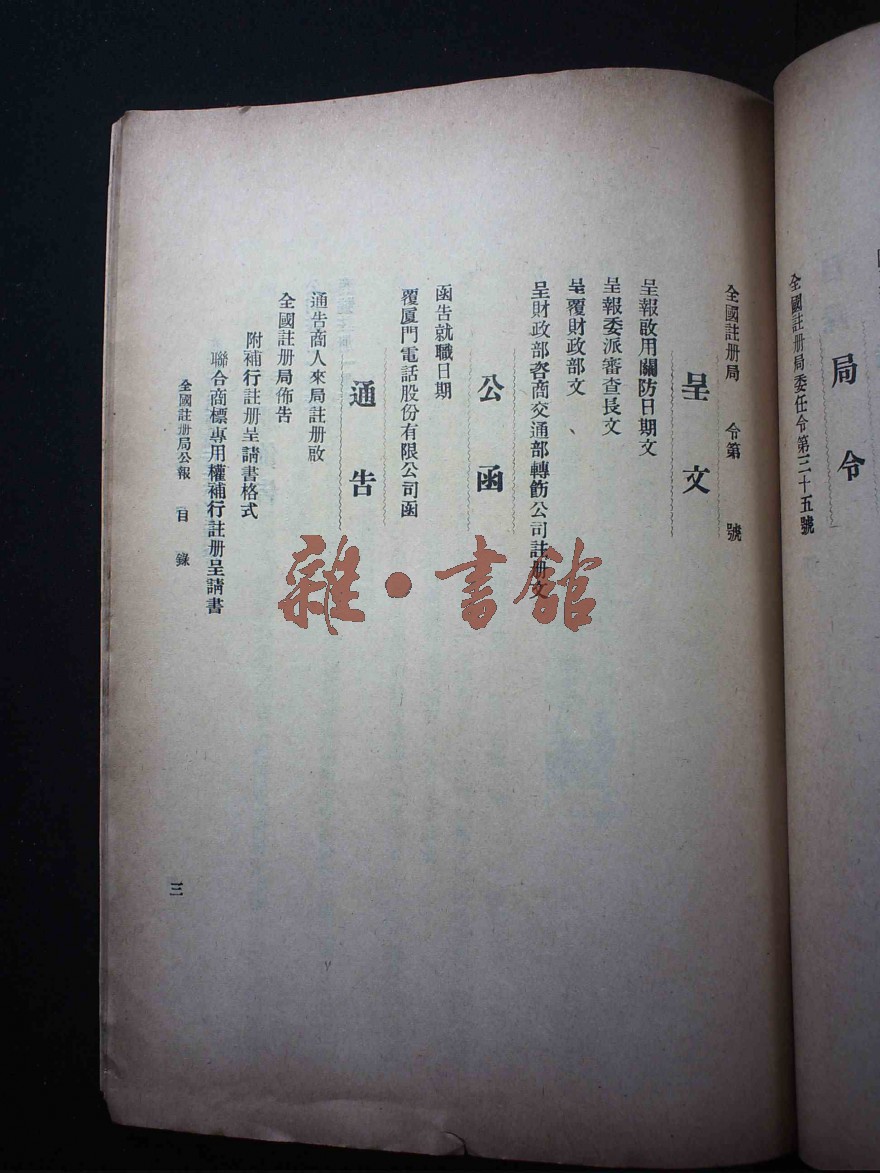 局令
全國註册局委任令第三十五號
全國註册局　令第　號
呈文
呈報啟用關防日期文
呈報委派審查長文
呈覆財政部文、
呈財政部咨商交通部轉飭公司註册文
公函
函告就職日期
覆厦門電話股份有限公司函
通告
通告商人來局註册啟
全國註册局佈告
附補行註册呈請書格式
聯合商標專用權補行註册呈請書
全國註册局公報　目錄
三
雜·書館